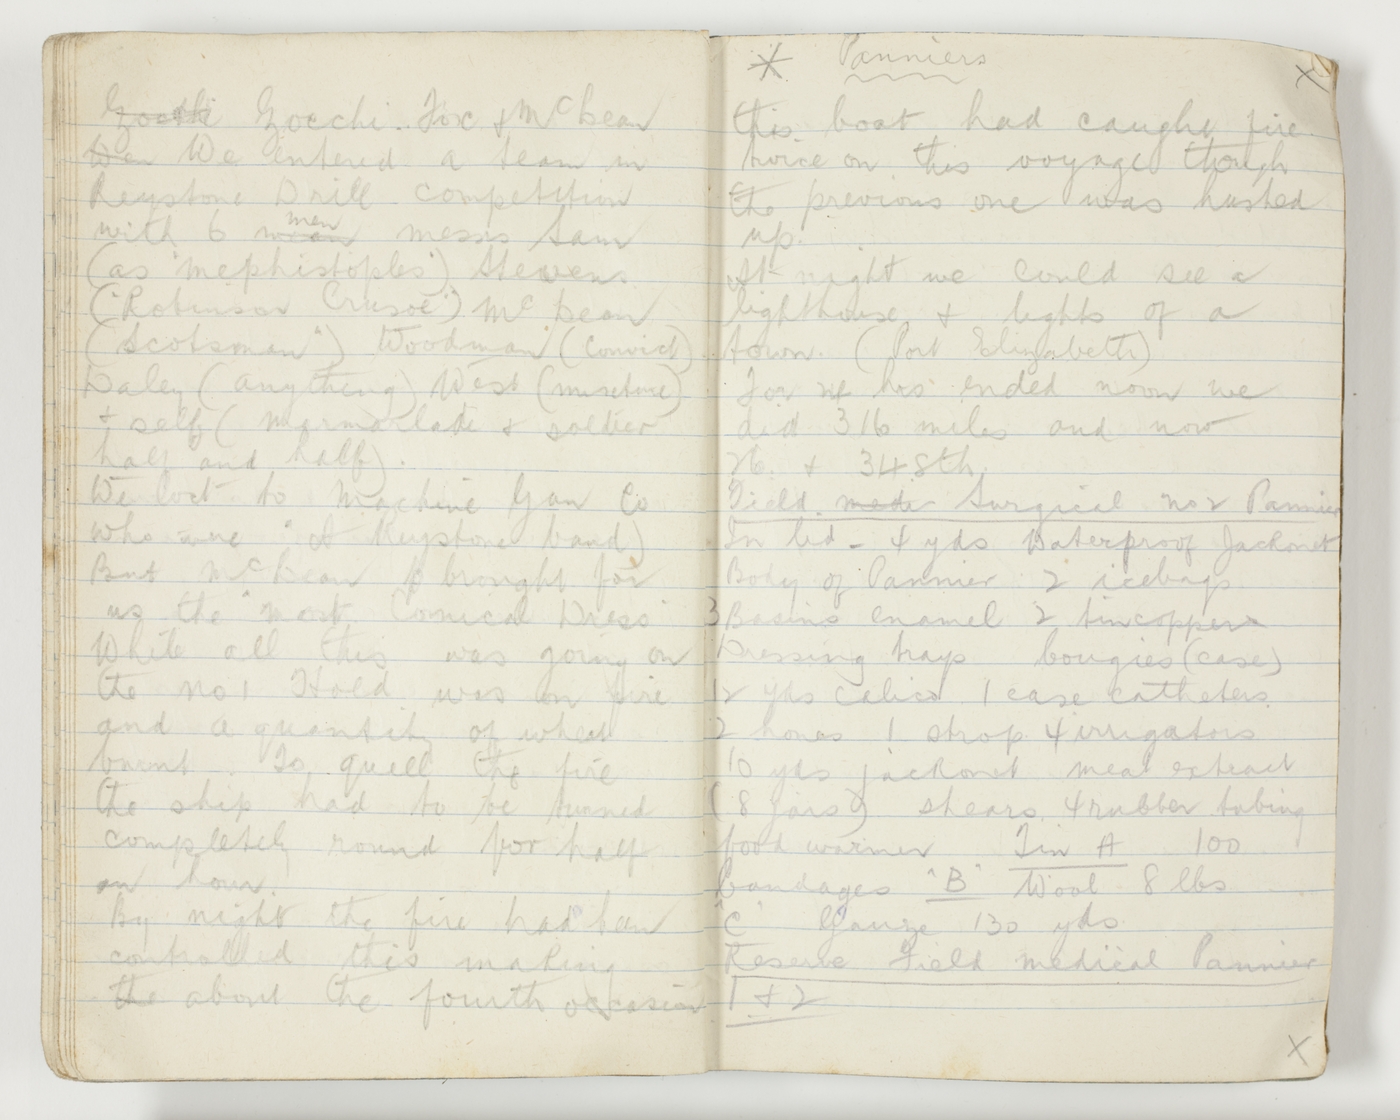 Zocchi Zocchi. Fix & McBean
We entered a team in
Keystone Drill competition
with 6 men messrs Sam
(as "mephistoples") Stevens
("Robinson Crusoe") McBean
("Scotsman") Woodman (Convict)
Daley (anything) West (mixture)
& self (marmalade & soldier
half and half).
We lost to Machine Gun Co
who were "a Keystone band)
But McBean brought for
us the "most Comical Dress"
While all this was going on
the no 1 Hold was on fire
and a quantity of wheat
burnt. To quell the fire
the ship had to be turned
completely round for half
an hour.
By night the fire had been
controlled this making
the about the fourth occasion
* Panniers x
this boat had caught fire
twice on this voyage though
the previous one was hushed
up.
At night we could see a
lighthouse & lights of a
town. (Port Elizabeth)
For has ended noon we
did 316 miles and now
26. & 348th
Field Surgical no 2 Pannier
In lid - 4 yds Waterproof Jackonet
Body of Pannier 2 icebags
3 Basins enamel 2 tincoppers
Dressing trays bougies (case)
12 yds calico 1 case catheters
2 hones 1 strop 4 irrigators
10 yds jackonet meat extract
(8 jars) shears 4 rubber tubing
food warmer Tin A 100
bandages "B" Wool 8 lbs
"C" Gauze 130 yds
Reserve Field medical Pannier
1 & 2
x